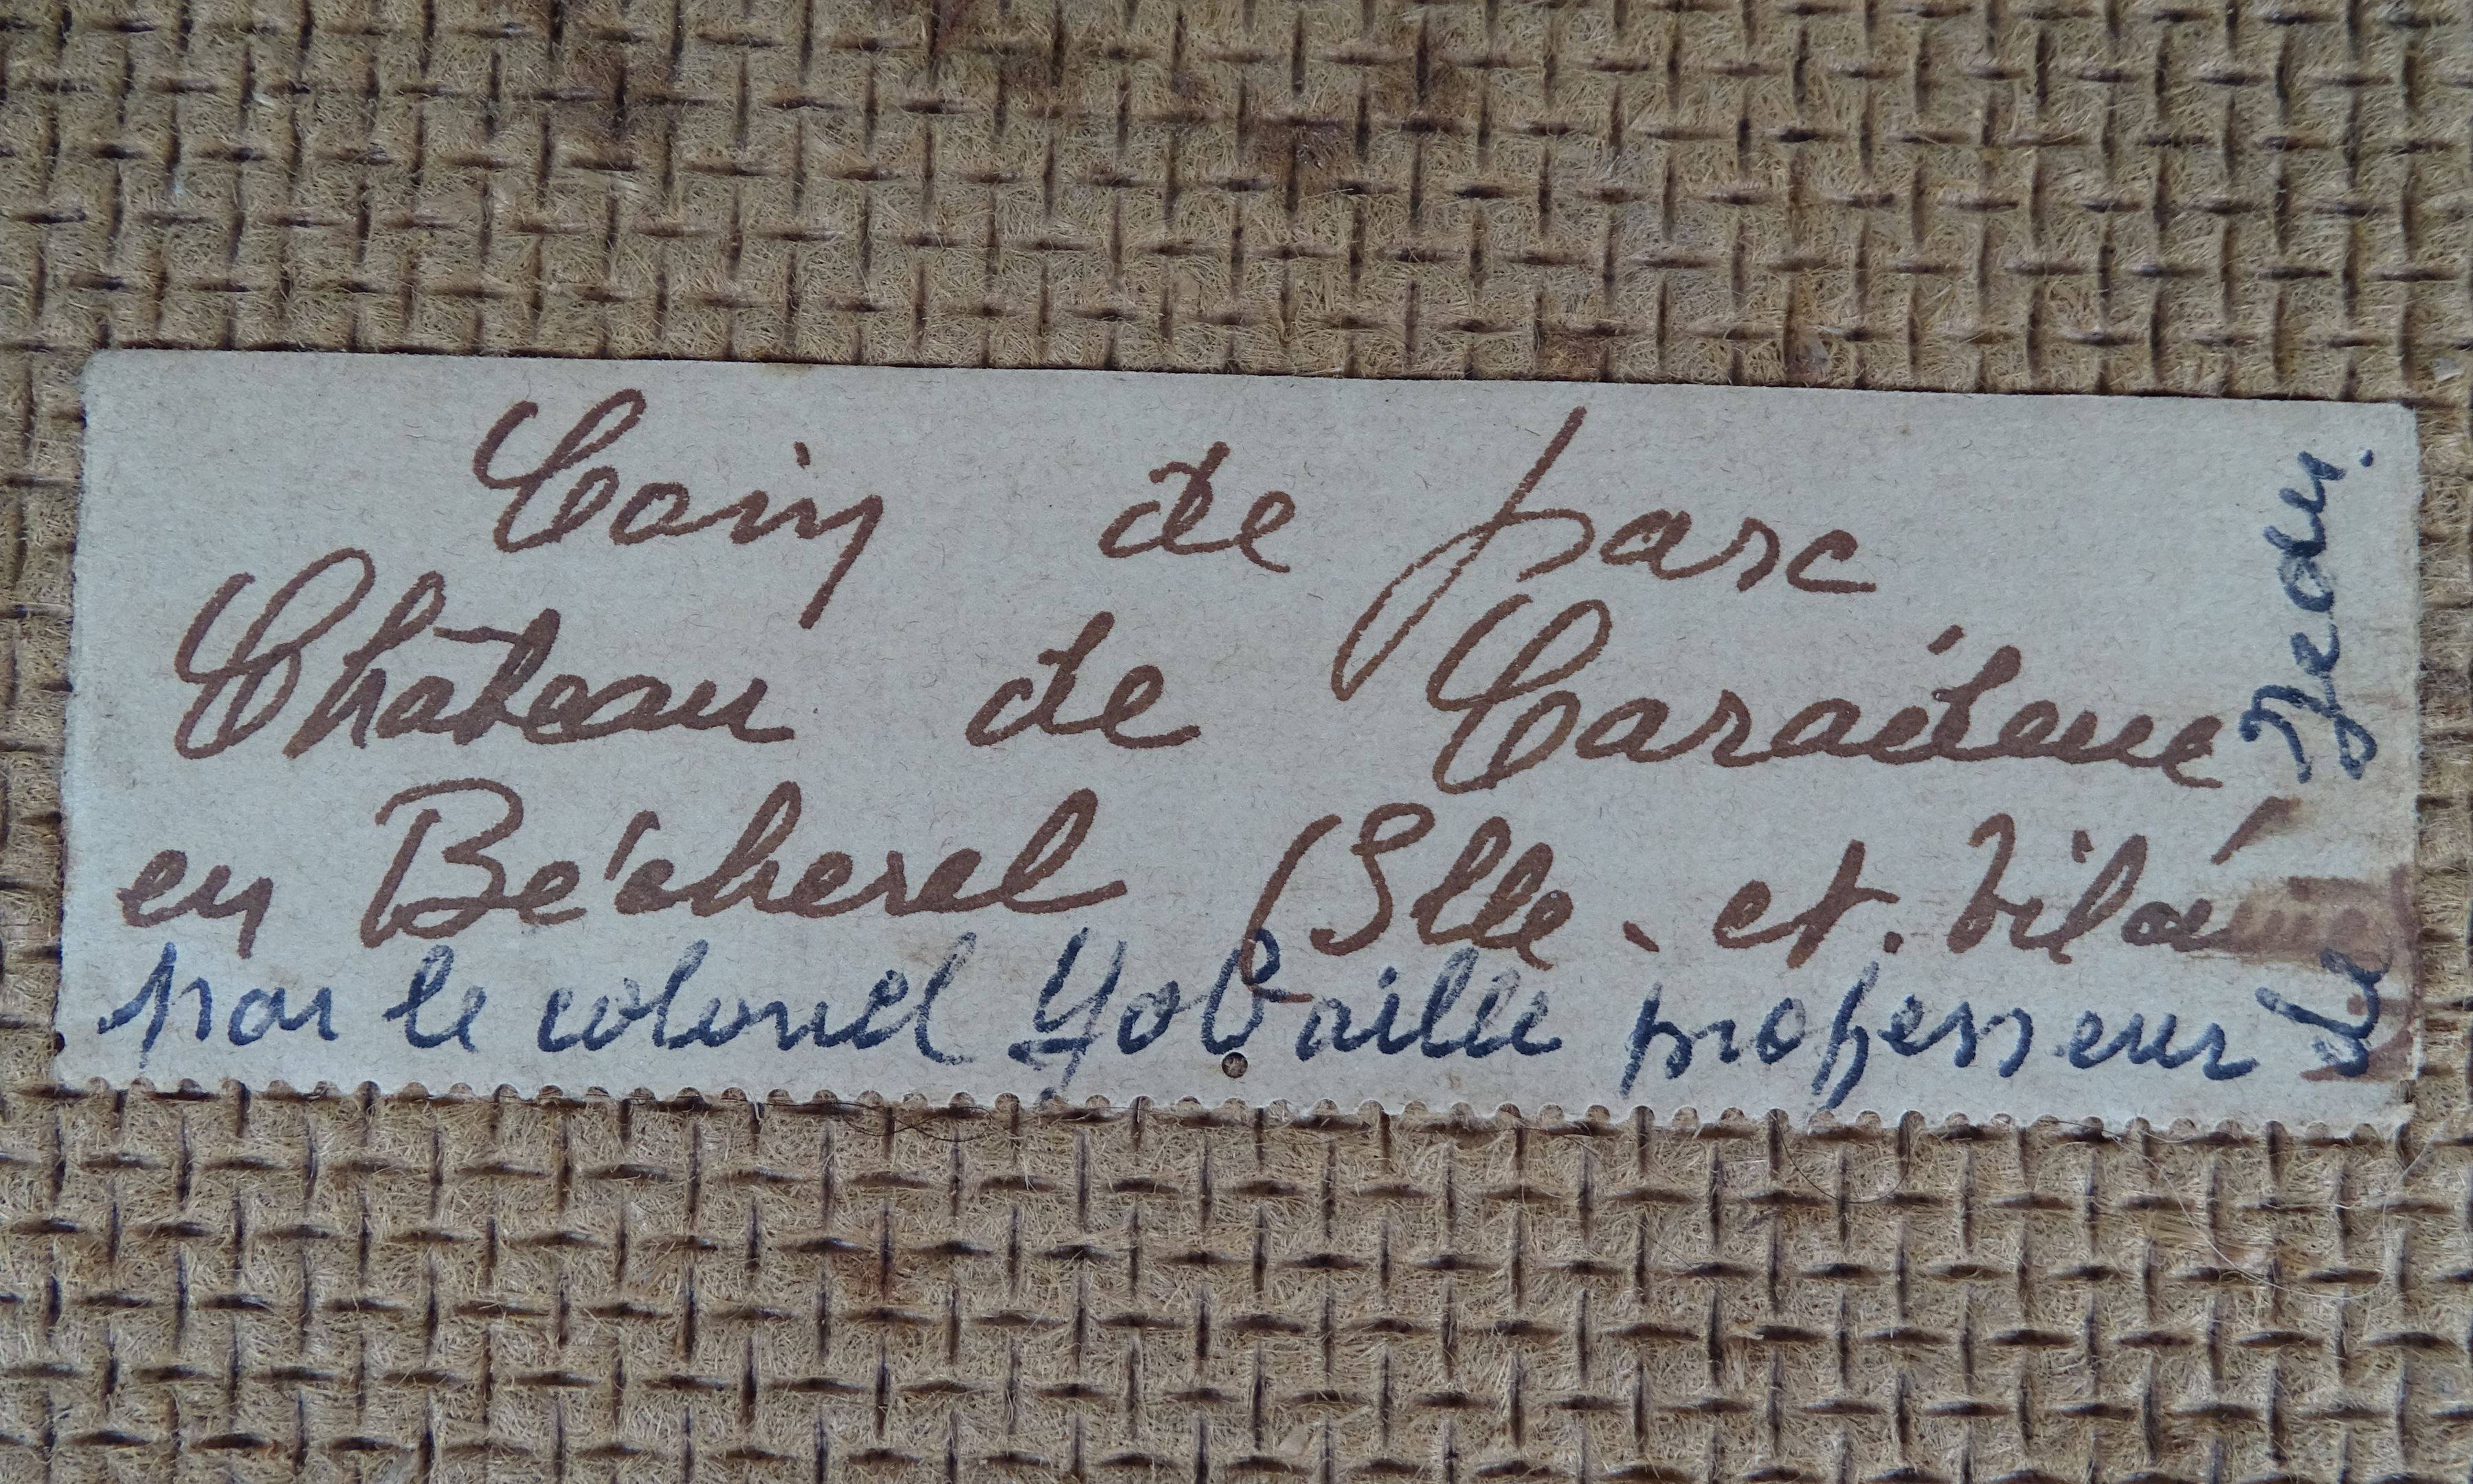 Coin de parc
Château de Caradeuc
en Bécherel (Ille-et-Vilaine
par le colonel professeur de
Jean.